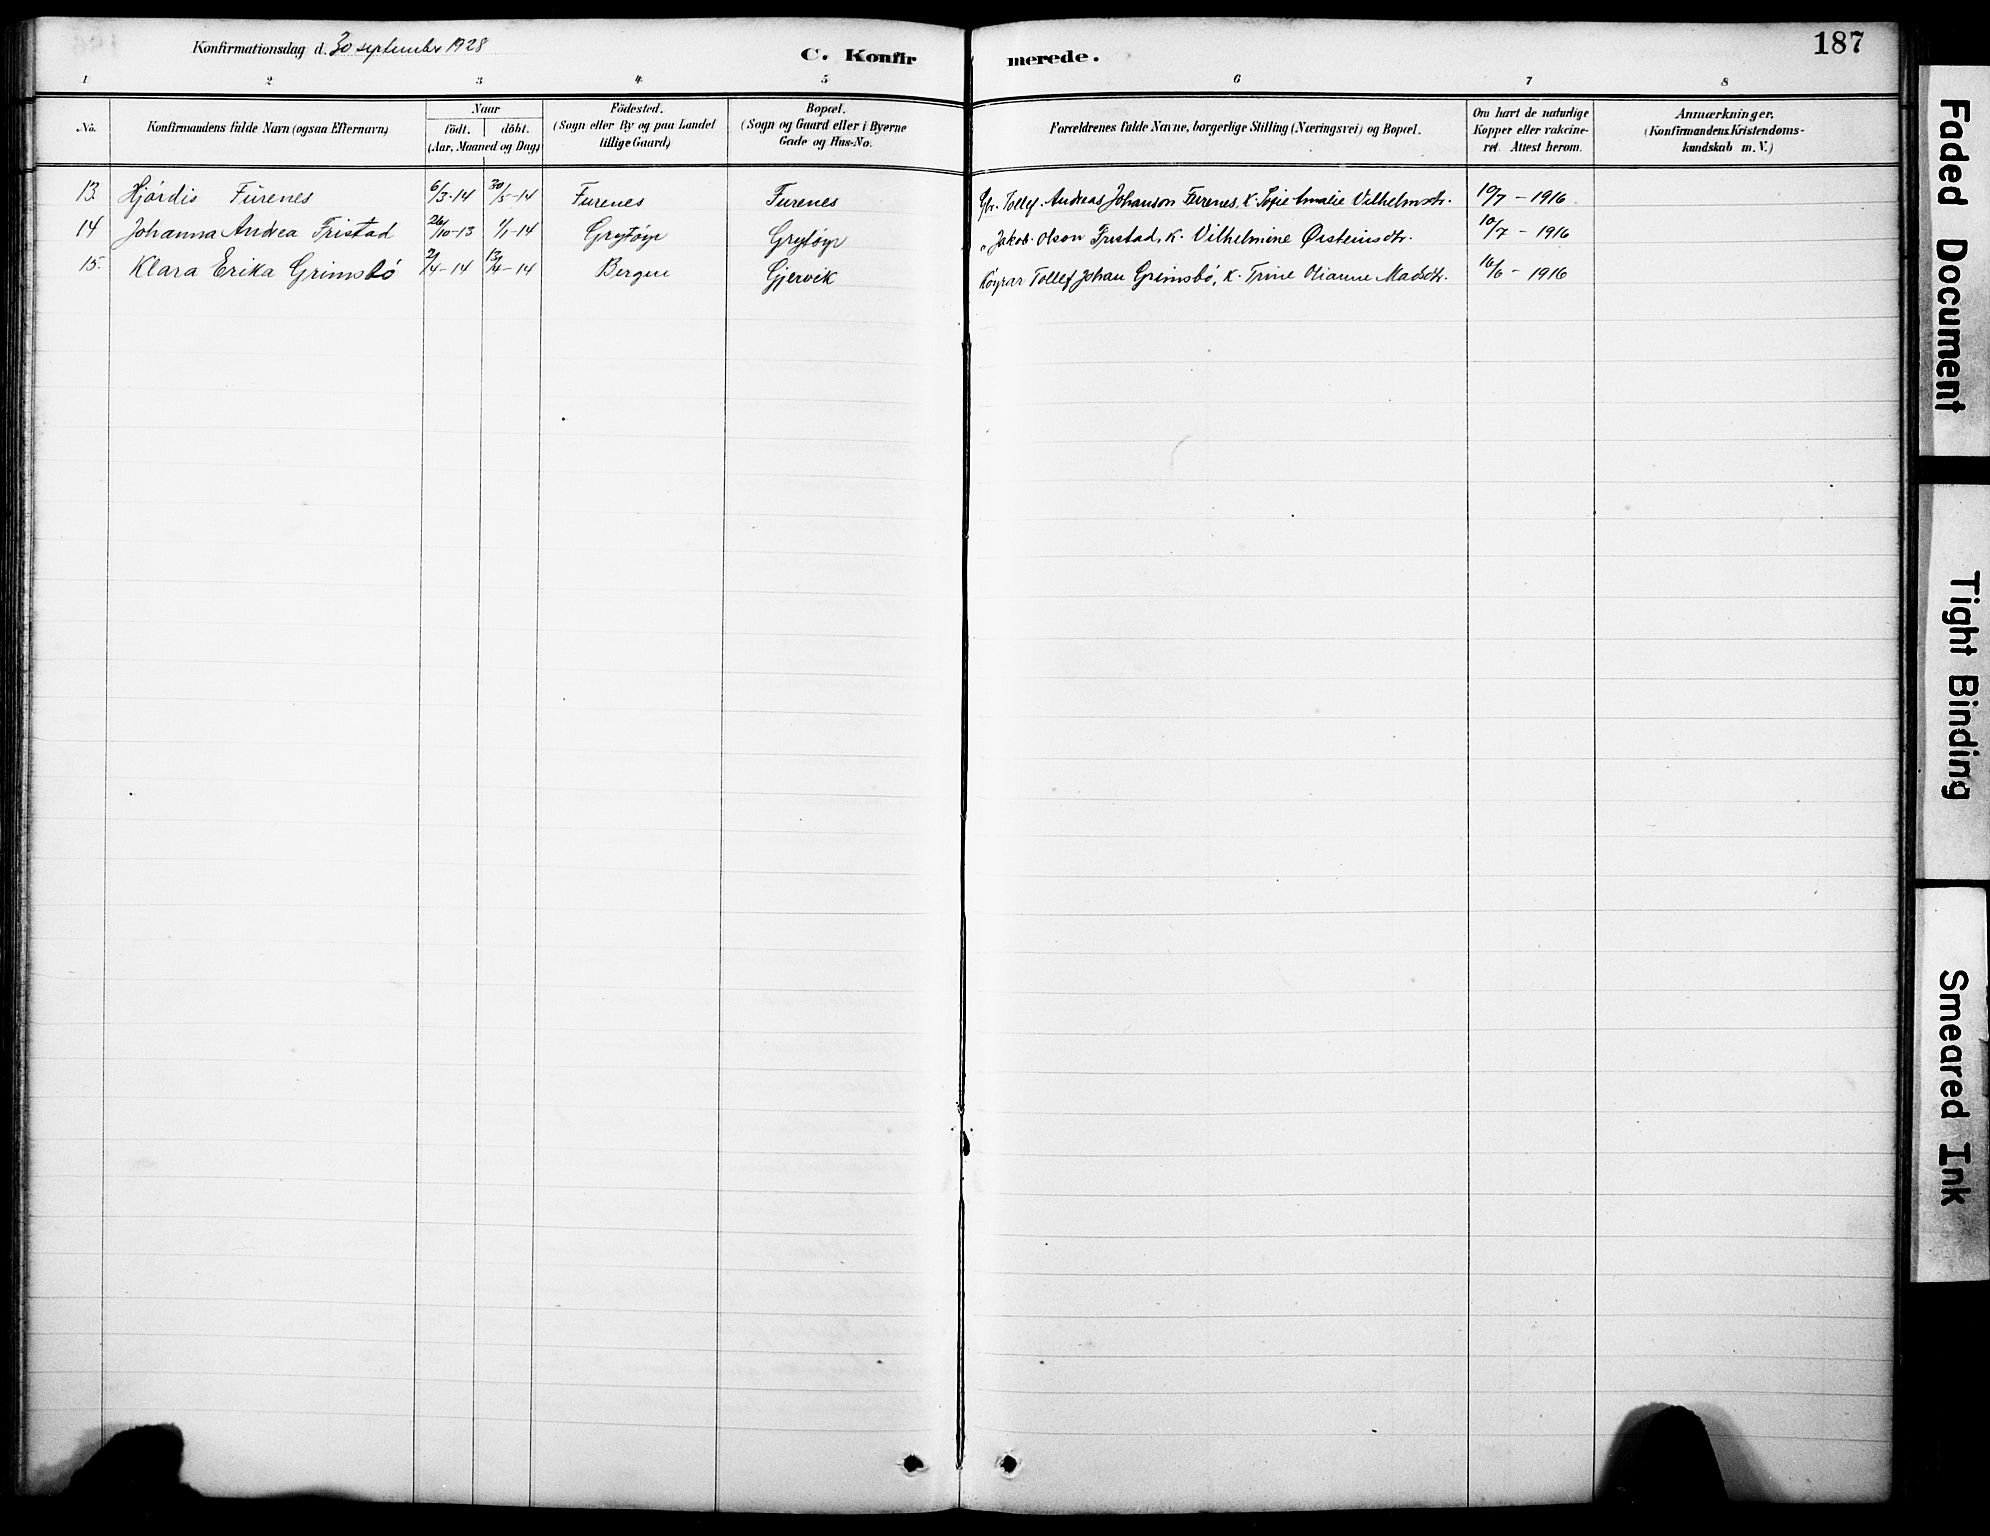 Konfirmationsdag d. 30 september 1928
C. Konfirmerede.
187
1 2 3 4 5 6 7 8
No.
Konfirmandens fulde Navn (ogsaa Efternavn)
Naar
födt. döbt.
(Aar, Maaned og Dag)
Födested.
(Sogn eller By og paa Landet
tillige Gaard)
Bopæl.
(Sogn og Gaard eller i Byerne
Gade og Hus-No.
Forældrenes fulde Navne, borgerlige Stilling (Næringsvei) og Bopæl.
Om havt de naturlige
Kopper eller vakcine-
ret. Attest herom.
Anmærkninger.
(Konfirmandens Kristendoms-
kundskab m. V.)
13. Hjördis Furenes 6/3-14 30/5-14 Furenes Furenes Gbr. Tollef Andreas Johanson Furenes, K. Sofie Amalie Vilhelmsdtr. 10/7 - 1916
14 Johanna Andrea Tristad 26/10-13 1/1-14 Grytöyr Grytöyr " Jakob Olson Tristad, K. Vilhelmine Østeinsdtr. 10/7 - 1916
15. Klara Erika Grimsbö 2/4-14 13/4-14 Bergen Gjervik Köyrar Tollef Johan Grimsbö, K. Trine Olianne Madsdtr. 16/6 - 1916
Faded Document
Tight Binding
Smeared Ink